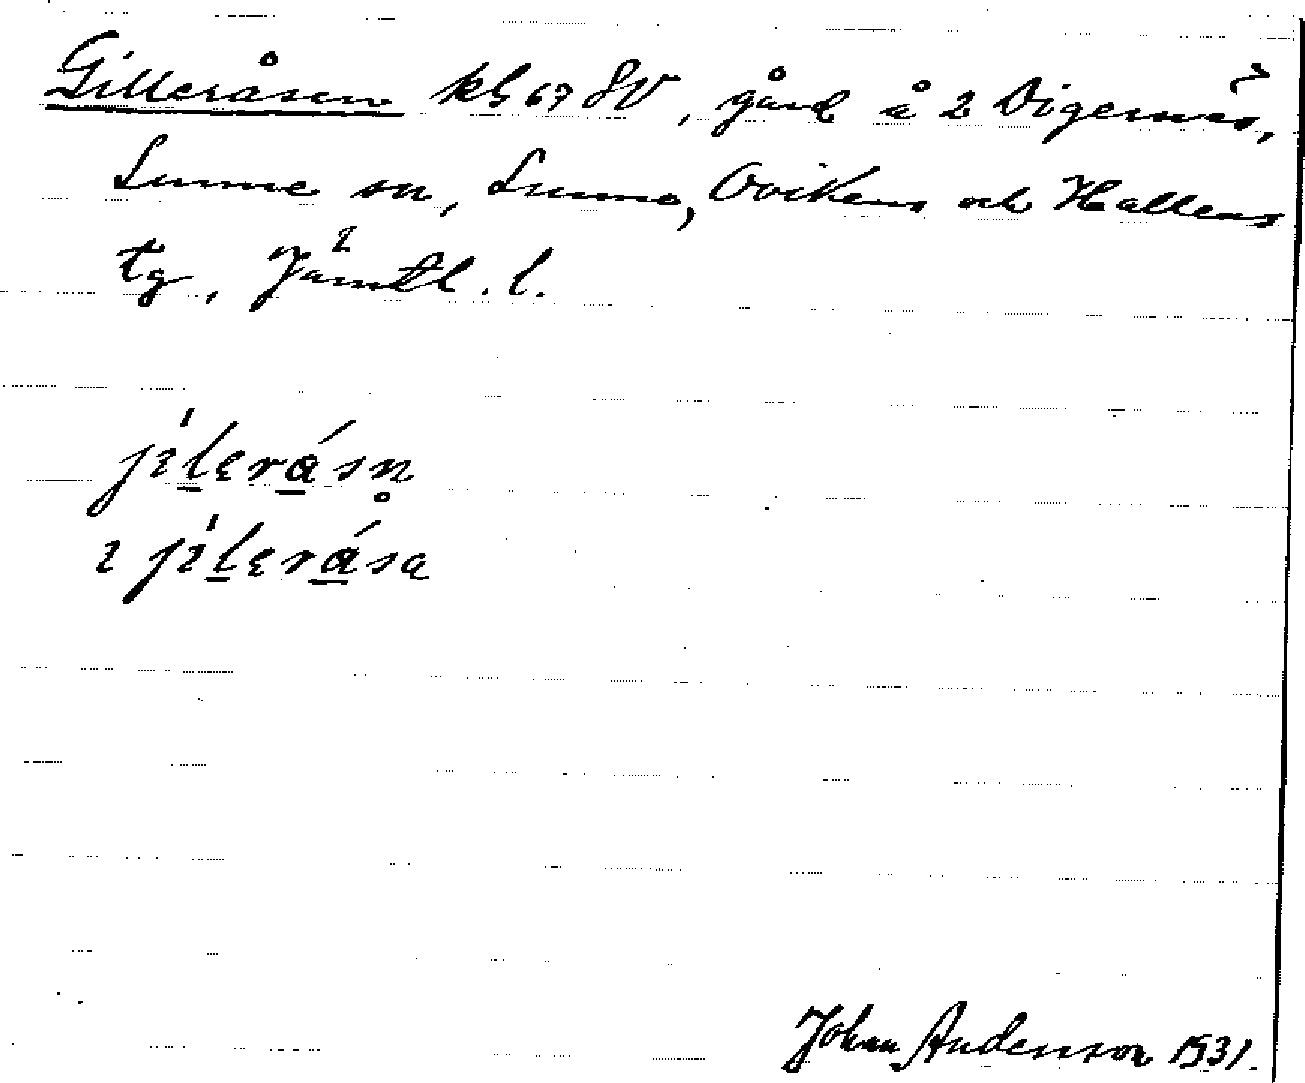 Gilleråsen kbl 67 SV, gård å 2 Digernäs,
Sunne sn, Sunne, Ovikens och Hallens
tg, Jämtl. l.
jílerá̱sn̥
ɩ jílerá̱sa
Johan Anderson 1931.